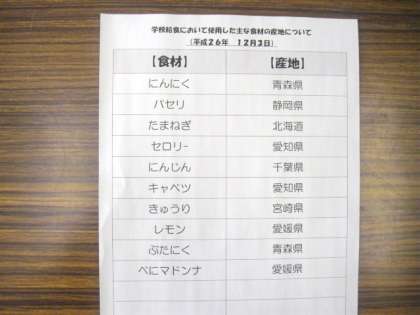 学校給食において使用した主な食材の産地について
(平成26年 12月3日)
【食材】 【産地】
にんにく 青森県
パセリ 静岡県
たまねぎ 北海道
セロリー 愛知県
にんじん 千葉県
キャベツ 愛知県
きゅうり 宮崎県
レモン 愛媛県
ぶたにく 青森県
べにマドンナ 愛媛県